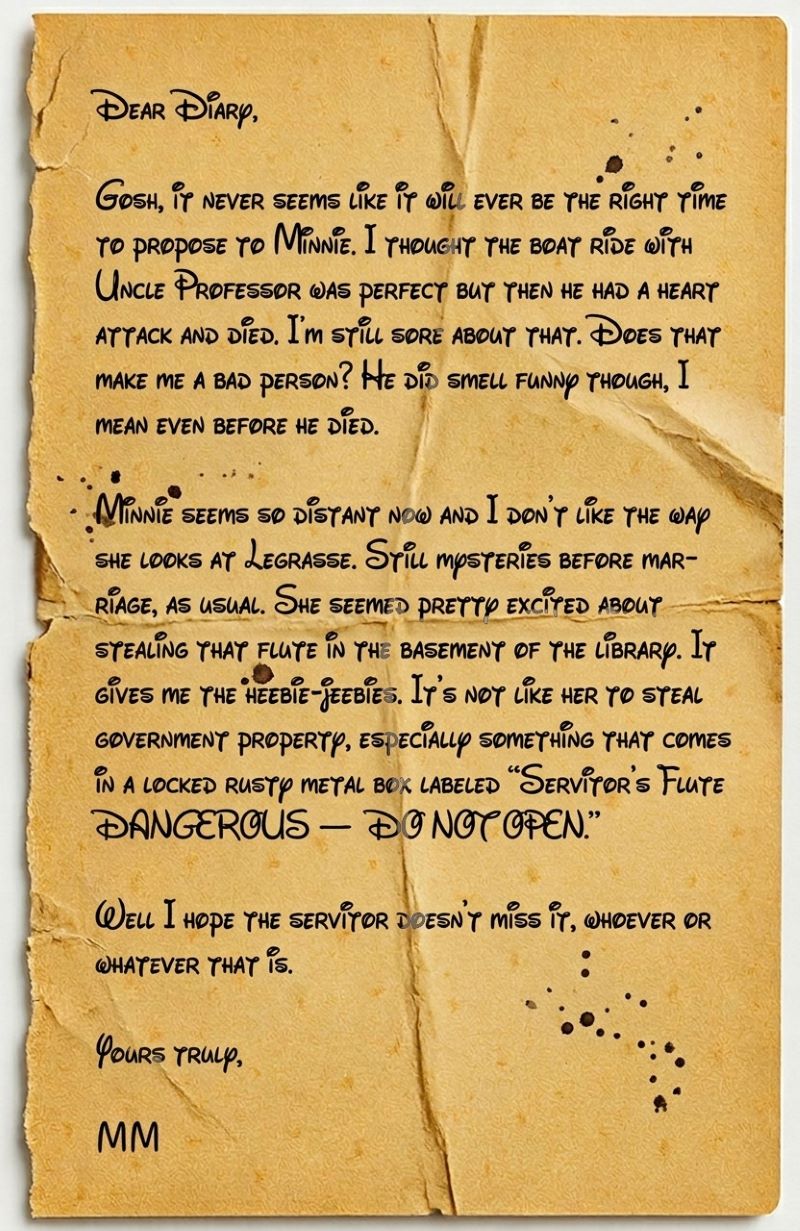 Dear Diary,
Gosh, it never seems like it will ever be the right time
to propose to Minnie. I thought the boat ride with
Uncle Professor was perfect but then he had a heart
attack and died. I'm still sore about that. Does that
make me a bad person? He did smell funny though, I
mean even before he died.
Minnie seems so distant now and I don't like the way
she looks at Legrasse. Still mysteries before mar-
riage, as usual. She seemed pretty excited about
stealing that flute in the basement of the library. It
gives me the heebie-jeebies. It's not like her to steal
government property, especially something that comes
in a locked rusty metal box labeled “Servitor's Flute
DANGEROUS — DO NOT OPEN.”
Well I hope the servitor doesn't miss it, whoever or
whatever that is.
Yours truly,
MM